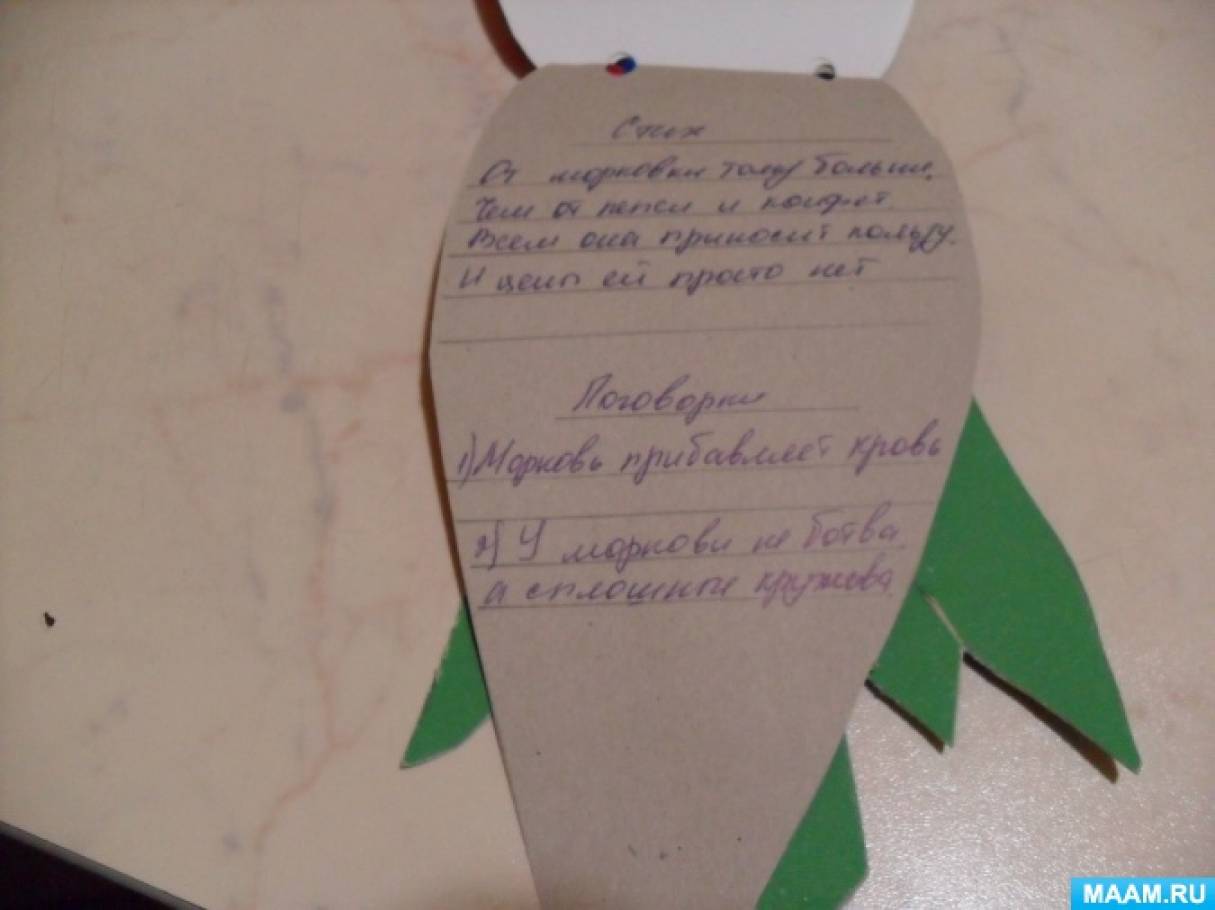 Стих
От морковки толку больше,
Чем от пепси и конфет
Всем она приносит пользу.
И цены ей просто нет
Поговорки
1) Морковь прибавляет кровь
2) У моркови не ботва
а сплошные кружева
MAAM.RU